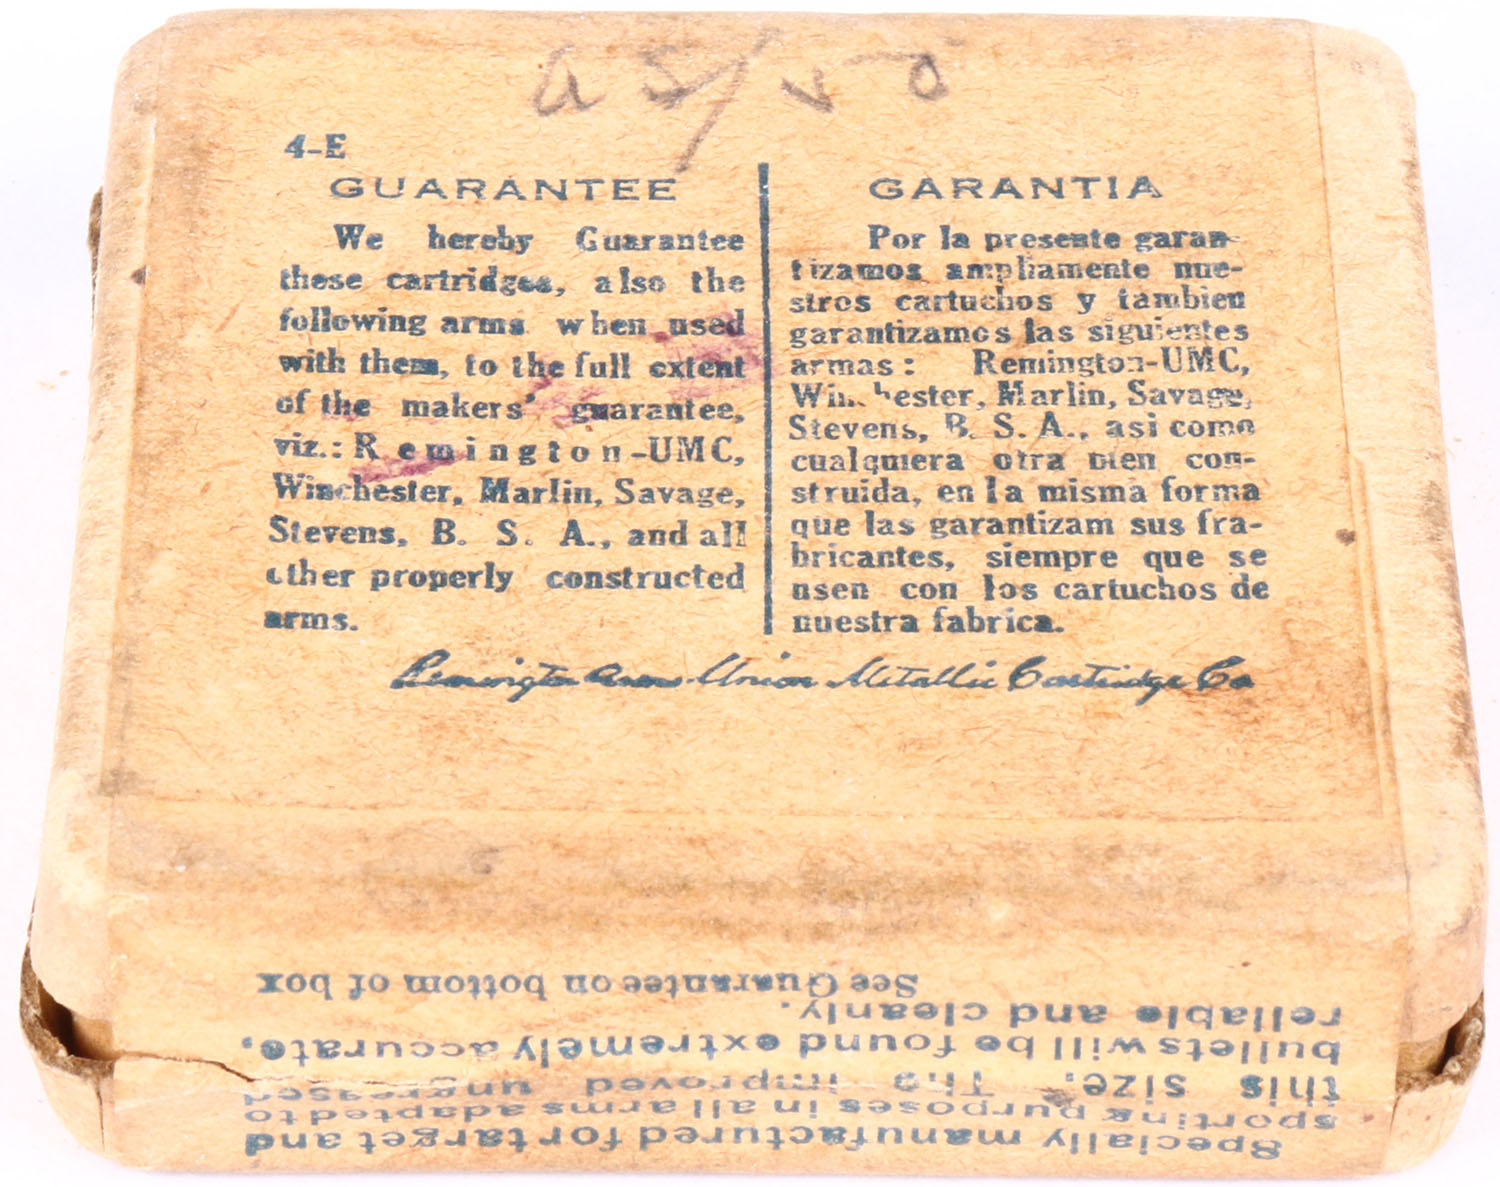 4-E
GUARANTEE
We hereby Guarantee
these cartridges, also the
following arms when used
with them, to the full extent
of the makers' guarantee,
viz.: Remington-UMC,
Winchester, Marlin, Savage,
Stevens, B. S. A., and all
other properly constructed
arms.
GARANTIA
Por la presente garan-
tizamos ampliamente nue-
stros cartuchos y tambien
garantizamos las siguientes
armas: Remington-UMC,
Winchester, Marlin, Savage,
Stevens, B. S. A., asi como
cualquiera otra bien con-
struida, en la misma forma
que las garantizam sus fra-
bricantes, siempre que se
usen con los cartuchos de
nuestra fabrica.
Remington Arms-Union Metallic Cartridge Co
Specially manufactured for target and
sporting purposes in all arms adapted to
this size. The improved ungreased
bullets will be found extremely accurate,
reliable and cleanly.
See Guarantee on bottom of box